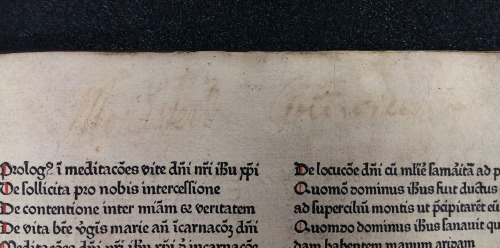 Prologꝰ ī meditacōes vite dn̄i nr̄i ih̄u xp̄i
De sollicita pro nobis intercessione
De contentione inter miām ⁊ veritatem
De vita btē v̄gīs marie an̄ īcarnacōꝫ dn̄i
Meditacōes dn̄i nr̄i ih̄u xp̄i ⁊ īcarnacōe
De locucōe dn̄i cū mliē samaitā ad p
Quomō dominus ih̄us fuit ductus
ad supercilū montis ut p̄cipitaret
Quomodo dominus ih̄us sanauit
dam habentem manum aridam